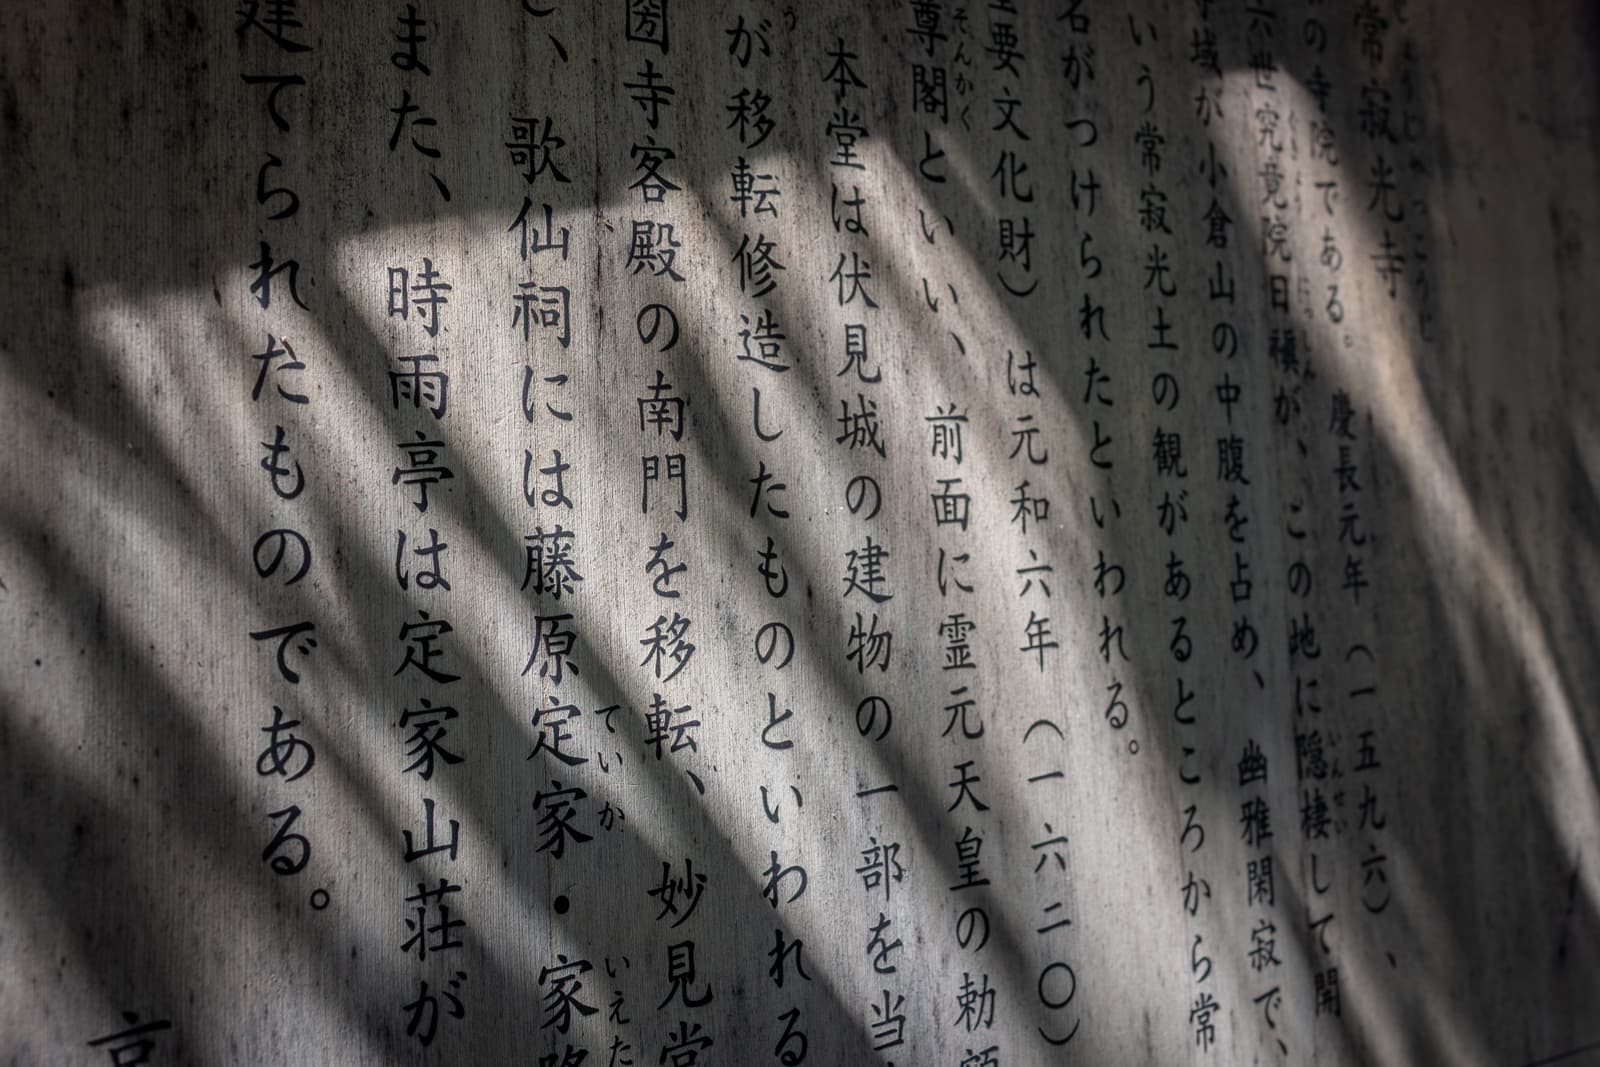 常寂光寺
の寺院である。慶長元年（一五九六）、
六世究竟院日禛が、この地に隠棲して開
域が小倉山の中腹を占め、幽雅閑寂で、
いう常寂光土の観があるところから常
名がつけられたといわれる。
本堂は伏見城の建物の一部を当
が移転修造したものといわれる
要文化財）は元和六年（一六二〇）
尊閣といい、前面に霊元天皇の勅額
そんかく
寺客殿の南門を移転、妙見堂
、歌仙祠には藤原定家・家隆
ていか
いえた
また、時雨亭は定家山荘が
建てられたものである。
京